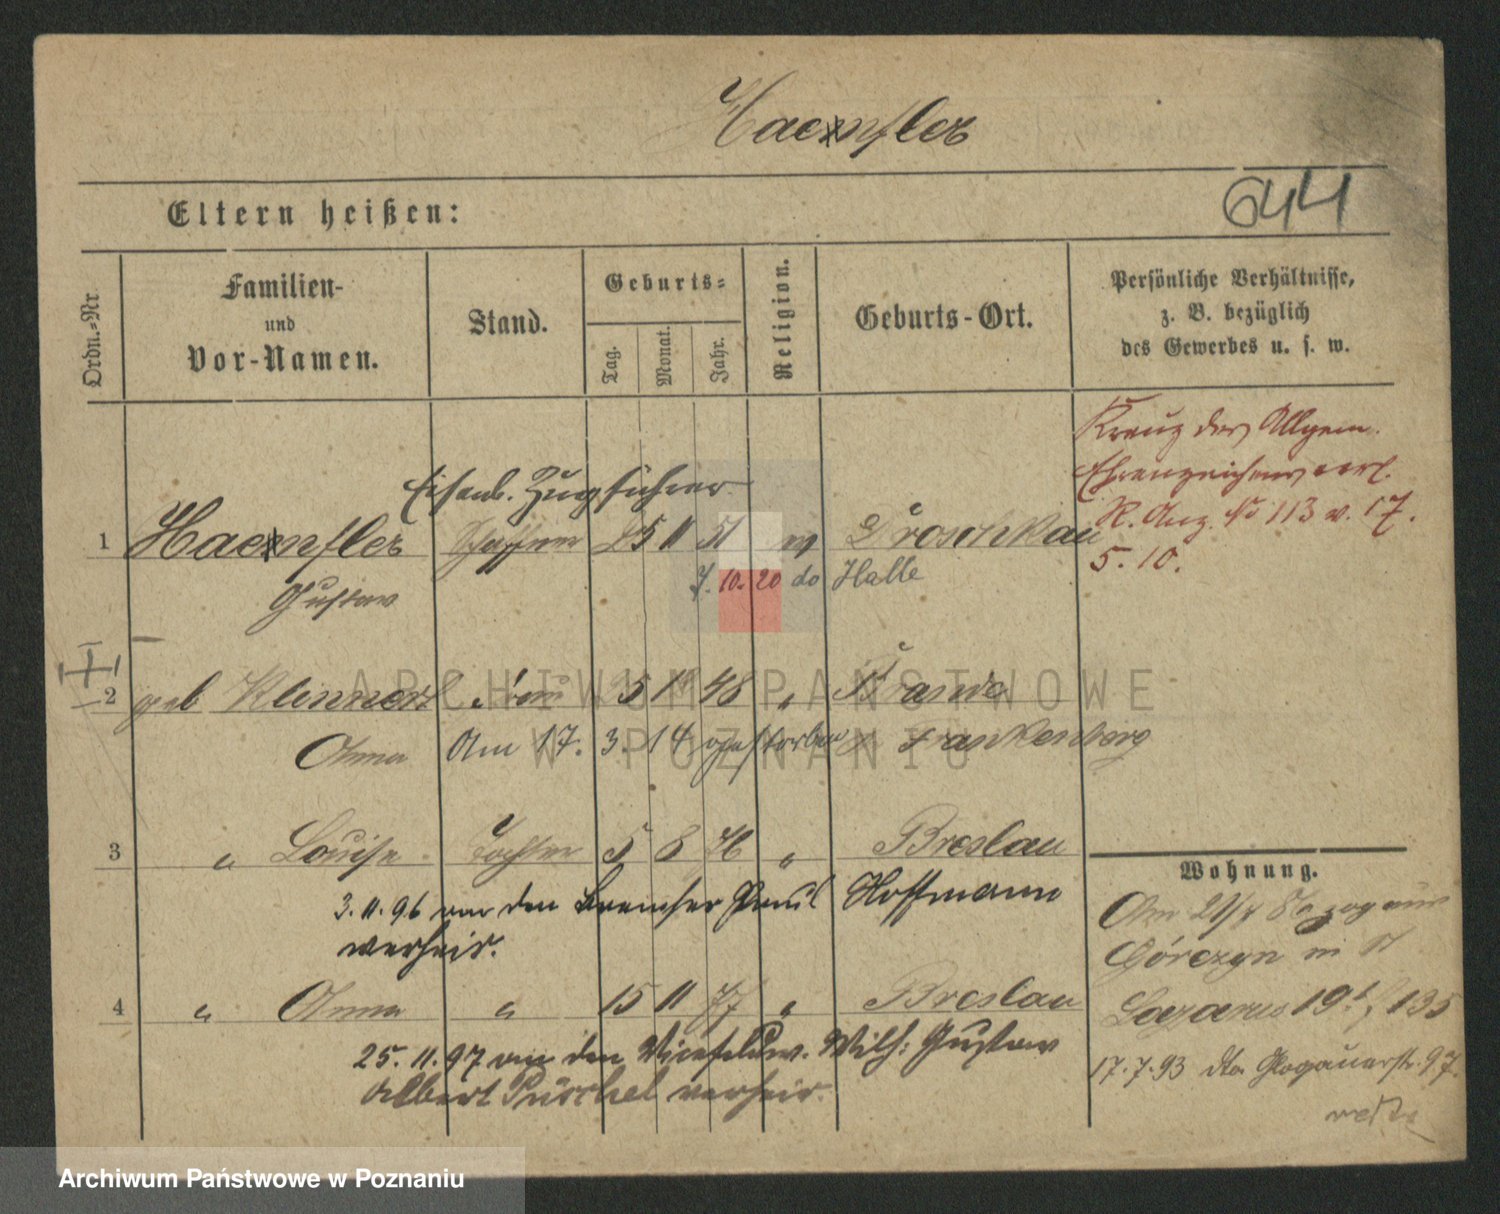 Haenfler
644
Eltern heißen:
Ordn.-Nr.
Familien-
und
Vor-Namen.
Stand.
Geburts-
Tag.
Monat.
Jahr.
Religion.
Geburts-Ort.
Persönliche Verhältnisse,
z. B. bezüglich
des Gewerbes u. s. w.
Kreuz des Allgem.
Ehrenzeichens verl.
R. Anz. No 113 v. 17.
5. 10.
Eisenb. Zugführer
1 Haenfler Schaffner 25 11 51 Droschkau
Gustav 7. 10. 20 do Halle
2 geb Klennert Frau 5 48 "
Anna Am 17. 3. 14 gestorben Frankenberg
3 " Louise Tochter 5 8 76 " Breslau
3. 11. 96 an den Bremser Paul Hoffmann
verheir.
4 " Anna " 15 11 77 " Breslau
25. 11. 97 an den Vicefeldw. Wilh: Gustav
Albert Püschel verheir.
Wohnung.
Am
Górczyn in St
Lazarus 135
17. 7. 93 dto Glogauerstr. 97.
ARCHIWUM PAŃSTWOWE
W POZNANIU
Archiwum Państwowe w Poznaniu